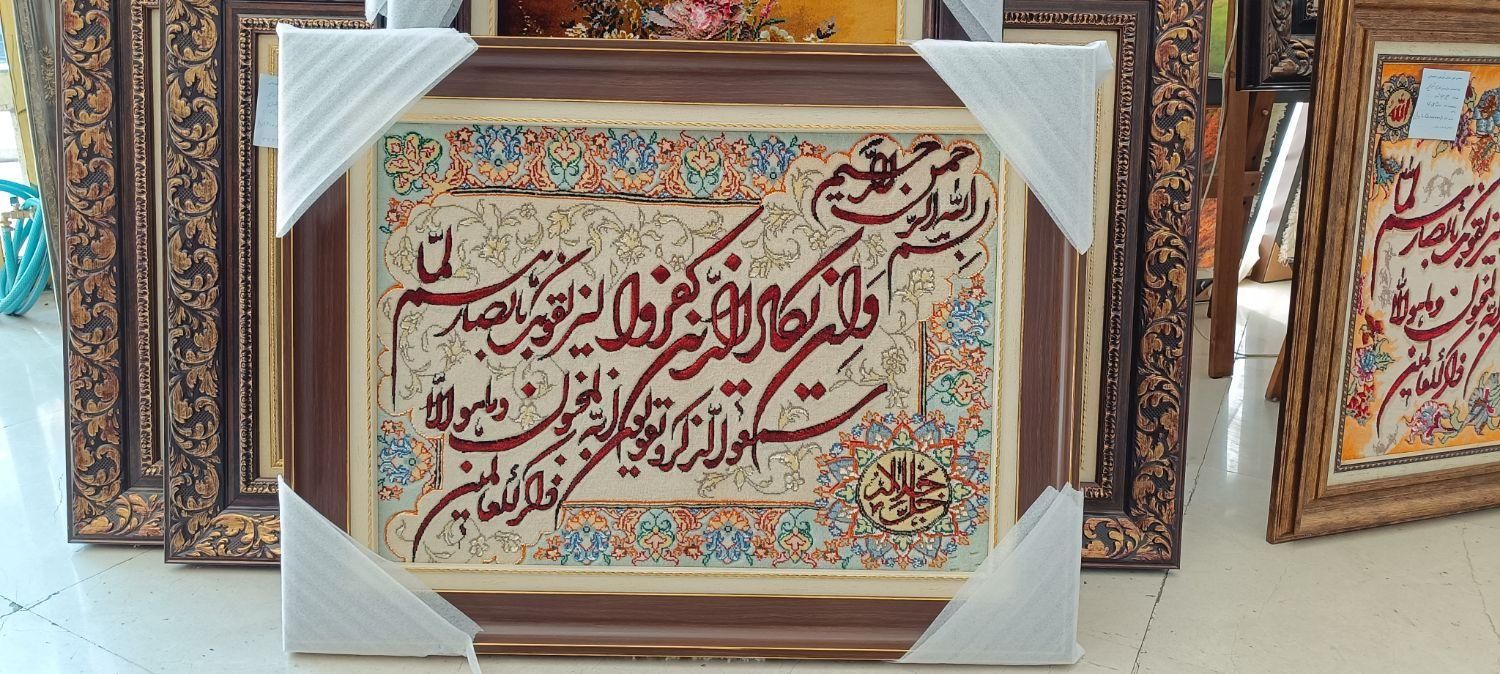 بسم الله الرحمن الرحیم
وَاِن یکاد الذین کفروا لیزلقونک بابصارهم لمّا
سمعوا الذکر و یقولون انه لمجنون و ما هو الّا
ذکر للعالمین
جل جلاله
الله
لمّا
لیزلقونک بابصارهم
انه لمجنون و ما هو الا
ذکر للعالمین